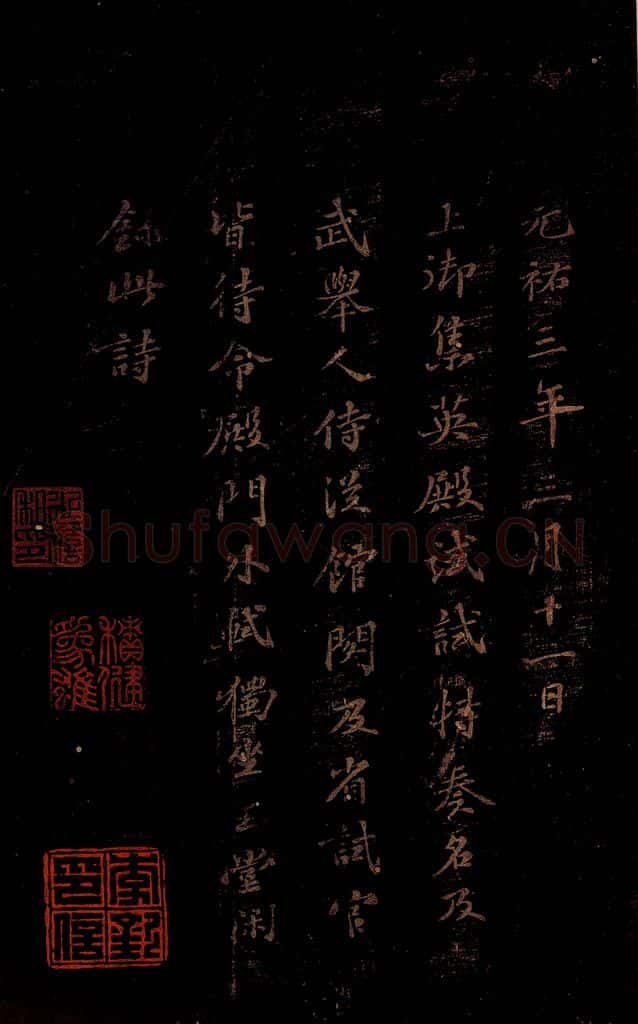 元祐三年三月十一日
上御集英殿試試特奏名及
武舉人侍從館閣及省試官
皆待令殿門外軾獨坐玉堂閑
錄此詩
積健為雄
Shufawang.CN